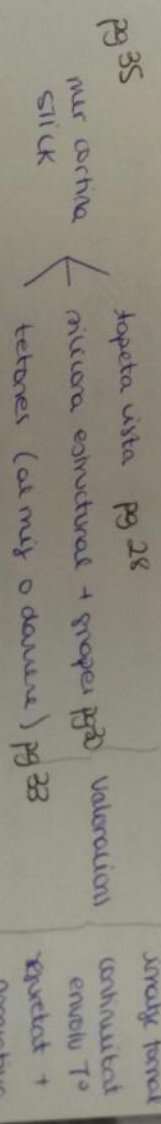 pg 35
mur cortina
stick
tapeta vista pg 28
silicona estructural + grapes pg 30
tetones (al mig o darrere) pg 33
valoracions
imatge formal
continuitat